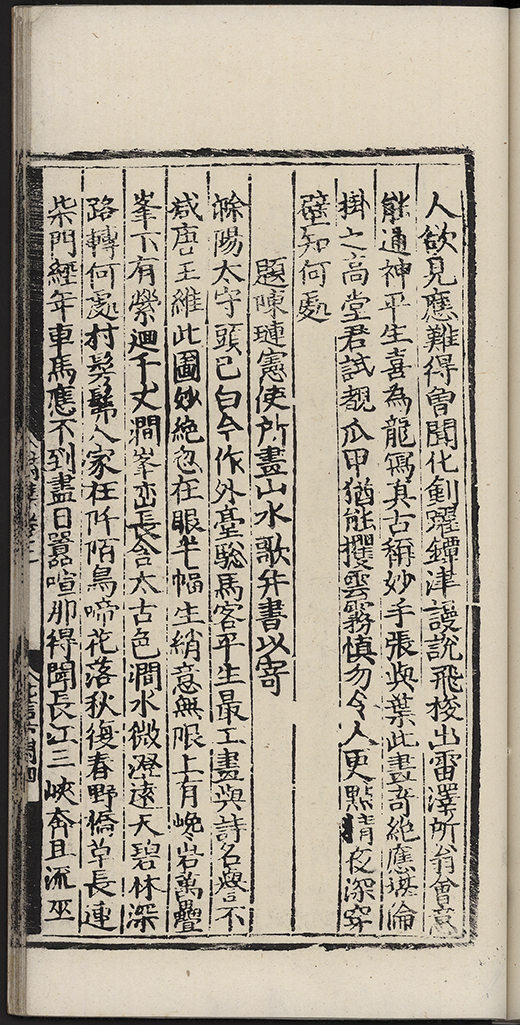 人欲見應難得曽聞化劍躍鐔津謾說飛梭出雷澤所翁會意
能通神平生喜為龍寫真古稱妙手張與葉此畫奇絶應堪倫
掛之高堂君試觀爪甲猶能攫雲霧慎勿令人更點睛夜深穿
壁知何處
題陳璉憲使所畫山水歌并書以寄
滁陽太守頭已白今作外臺驄馬客平生最工畫與詩名譽不
减唐王維此圖妙絶忽在眼半幅生綃意無限上有巉岩萬疊
峯下有縈迴千丈澗峯巒長含太古色澗水微澄遠天碧林深
路轉何處村髣髴人家在阡陌鳥啼花落秋復春野橋草長連
柴門經年車馬應不到盡日囂喧那得聞長江三峽奔且流巫